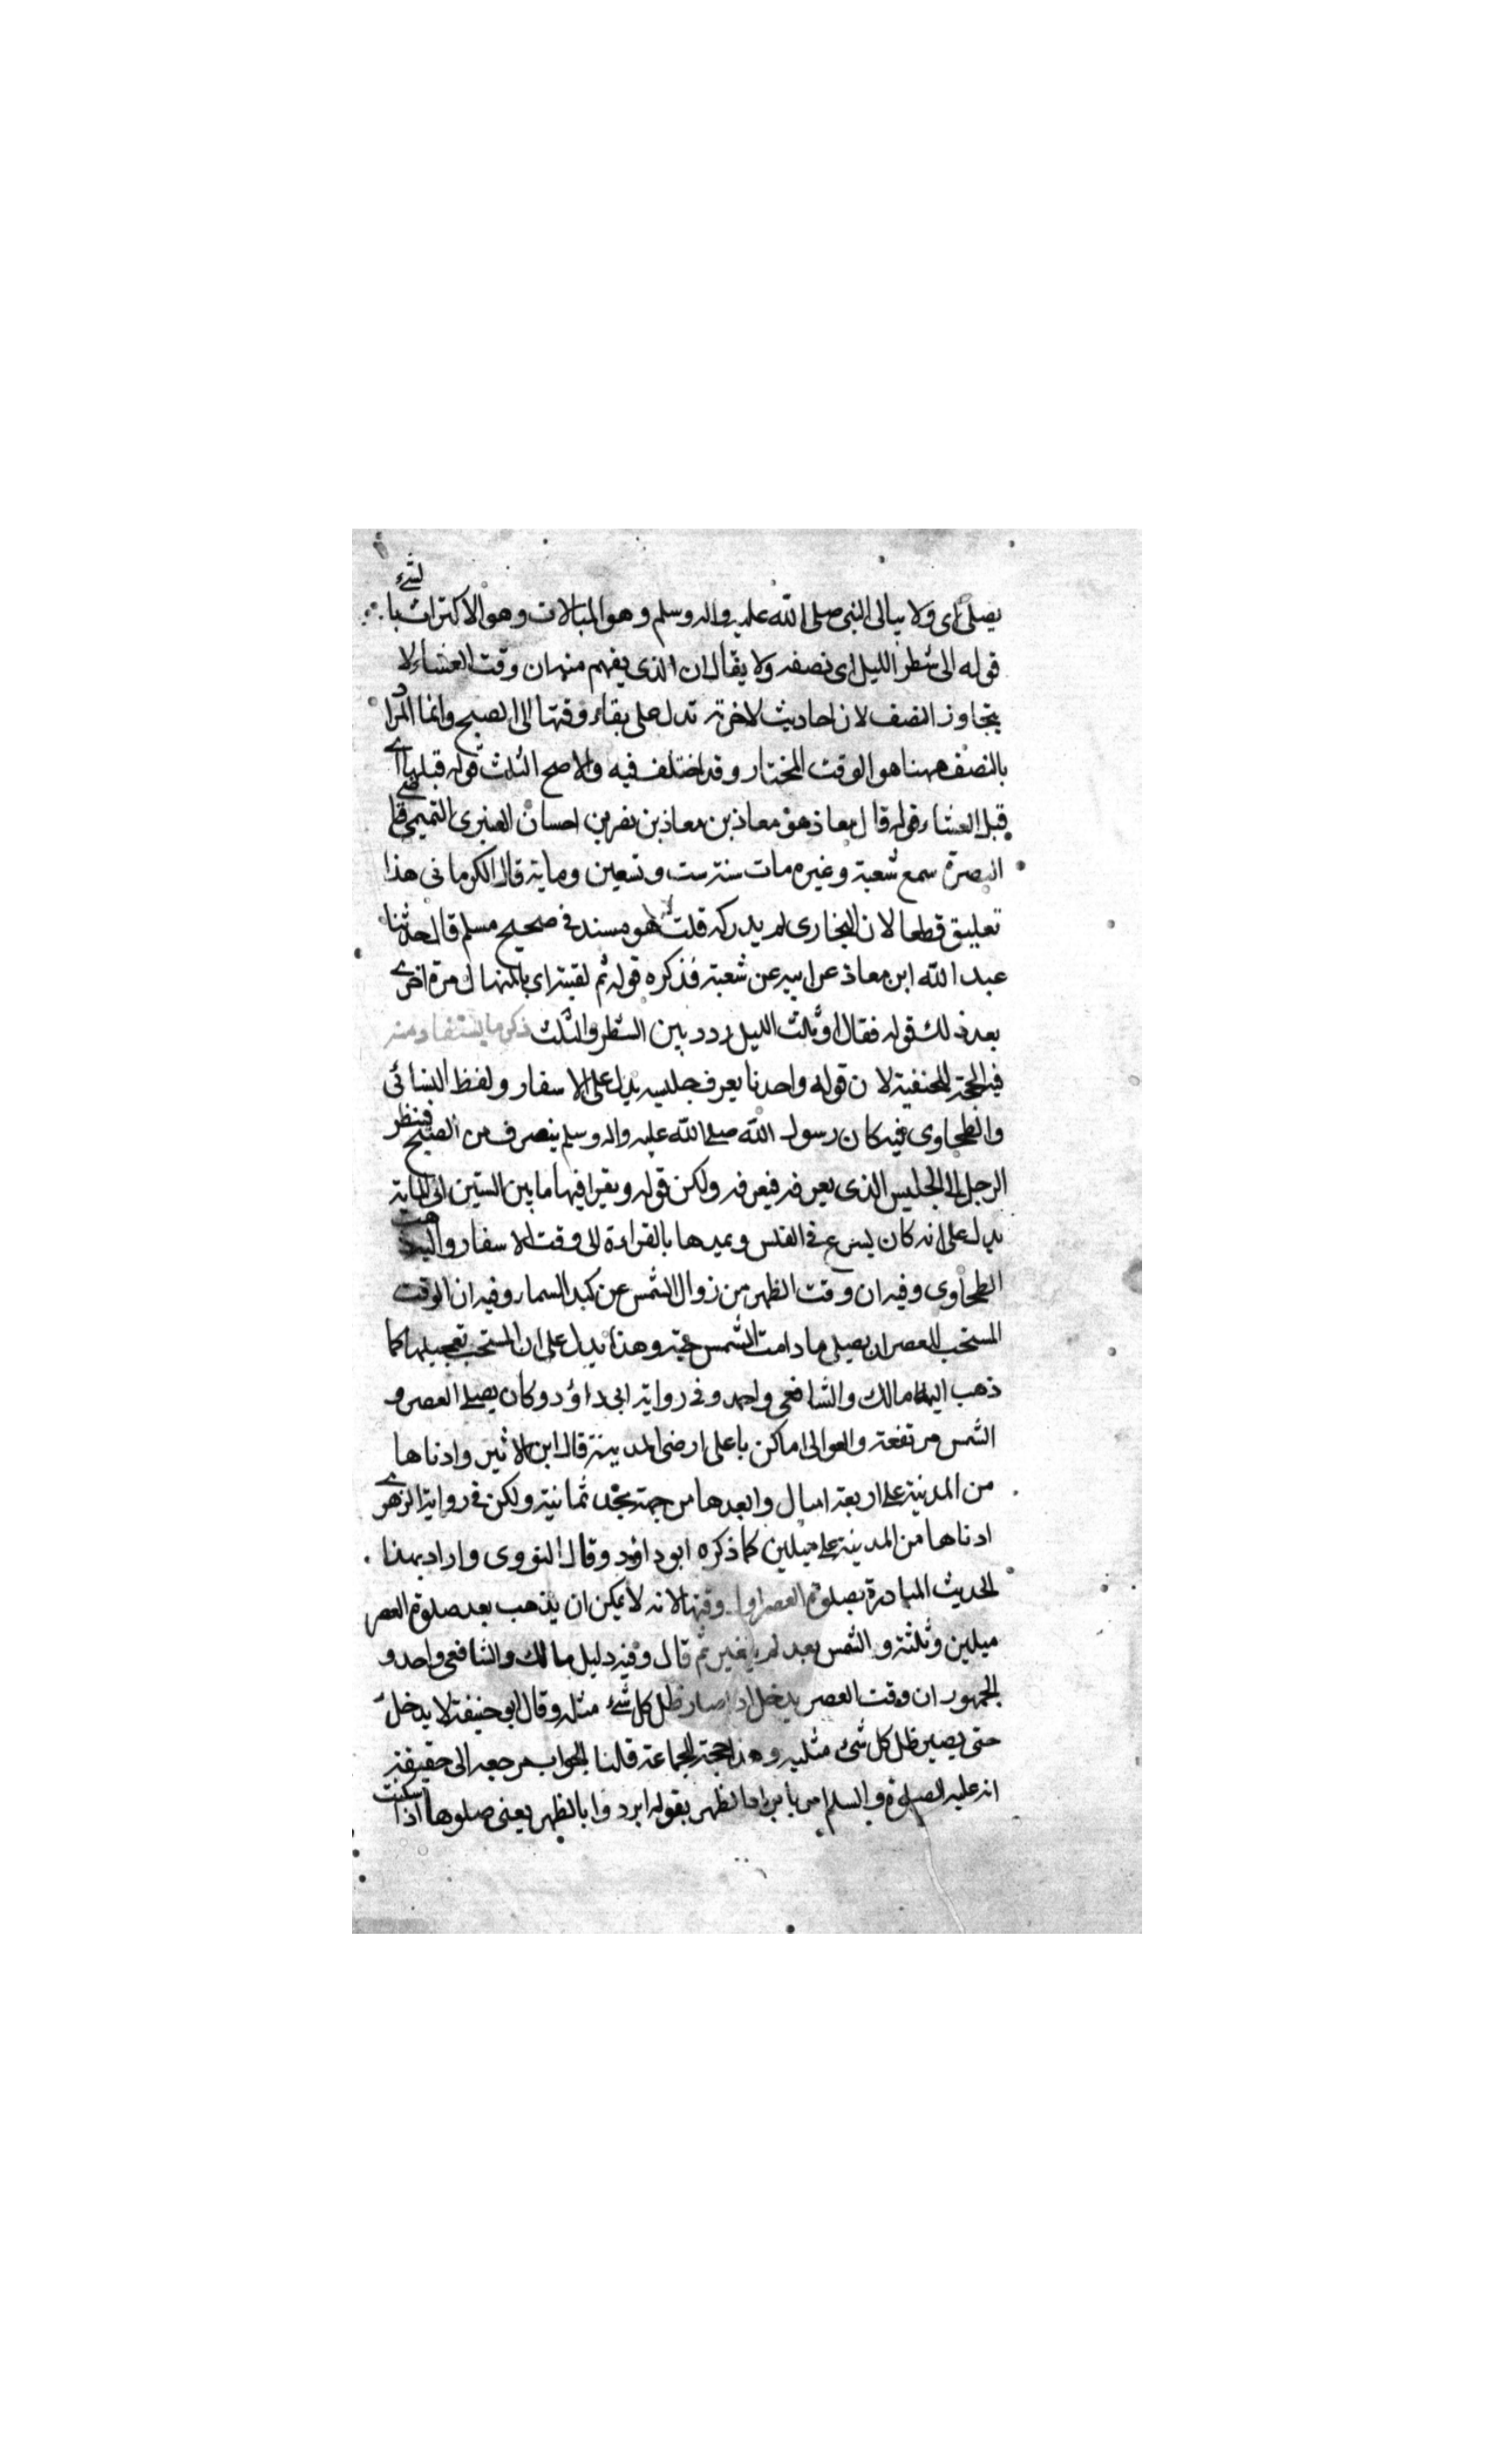 يصلى اى ولا يبالى النبى صلى الله عليه واله وسلم وهو المبالات وهو الاكتراث بالشئ
قوله الى شطر الليل اى نصفه ولا يقال ان الذى يفهم منه ان وقت العشاء لا
يتجاوز النصف لان احاديث لاخرته تدل على بقاء وقتها الى الصبح وانما المراد
بالنصف ههنا هو الوقت المختار وقد اختلف فيه والاصح الثلث قوله قبلها اے
قبل العشاء قوله قال معاذ هو معاذ بن معاذ بن نصر بن احسان العنبرى التميمى قاضے
البصرة سمع شعبة وغيره مات سنة ست وتسعين ومايه قال الكرمانى هذا
تعليق قطعا لان البخارى لم يدركه قلت هو مسند فى صحيح مسلم قال حدثنا
عبد الله ابن معاذ عن ابيه عن شعبة فذكره قوله ثم لقيته اى بالمنهال مرة اخرے
بعد ذلك قوله فقال او ثلث الليل ردد بين الشطر والثلث ذكر ما يستفاد منه
فيه الحجة للحنفية لان قوله واحدنا يعرف جليسه يدل على الاسفار ولفظ النسائى
والطحاوى فيه كان رسول الله صلى الله عليه واله وسلم ينصرف من الصبح فينظر
الرجل الى الجليس الذى يعرفه فيعرفه ولكن قوله ويقرا فيها ما بين الستين الى الماية
يدل على انه كان يشرع فى الغلس ويمدها بالقراءة الى وقت الاسفار واليه ذهب
الطحاوى وفيه ان وقت الظهر من زوال الشمس عن كبد السماء وفيه ان الوقت
المستحب للعصر ان يصلى ما دامت الشمس حية وهذا يدل على ان المستحب تعجيلها كما
ذهب اليه مالك والشافعى واحمد وفى رواية ابى داؤد وكان يصلى العصر و
الشمس مرتفعة والعوالى اماكن باعلى ارضى المدينة قال ابن الاثير وادناها
من المدنية على اربعة اميال وابعدها من جهة نجد ثمانية ولكن فى رواية الزهرے
ادناها من المدينة على ميلين كما ذكره ابو داؤد وقال النووى واراد بهذا
الحديث المبادرة بصلوة العصر اول وقتها لانه لا يمكن ان يذهب بعد صلوة العصر
ميلين وثلثة والشمس بعد لم يتغير ثم قال وفيه دليل مالك والشافعى واحمد و
الجمهور ان وقت العصر يدخل اذا صار ظل كل شئ مثله وقال ابو حنيفة لا يدخل
حتى يصير ظل كل شئ مثليه وهذا حجة للجماعة قلنا الجواب مرجعه الى حقيقة
انه عليه الصلوة والسلم امر بابراد الظهر بقوله ابردوا بالظهر يعنى صلوها اذا سكنت